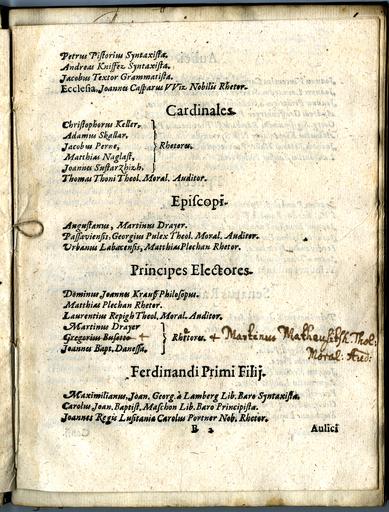 Petrus Pistorius Syntaxista.
Andreas Kniffez Syntaxista.
Jacobus Textor Grammatista.
Ecclesia, Joannes Casparus VViz Nobilis Rhetor.
Cardinales.
Christophorus Keller,
Adamus Skallar,
Jacobus Perne,
Rhetores.
Matthias Naglast,
Joannes Sustarzhizh.
Thomas Thoni Theol. Moral. Auditor.
Episcopi.
Augustanus, Martinus Drayer.
Passaviensis, Georgius Pulex Theol. Moral. Auditor.
Urbanus Labacensis, Matthias Plechan Rhetor.
Principes Electores.
Dominus Joannes Krauss Philosophus.
Matthias Plechan Rhetor.
Laurentius Repigh Theol. Moral. Auditor.
Martinus Drayer
Gregorius Busetto +
Rhetores. + Martinus Matheusitsh Thol:
Moral: Aud:
Joannes Bapt. Danessa.
Ferdinandi Primi Filij.
Maximilianus, Joan. Georg. à Lamberg Lib. Baro Syntaxista.
Carolus Joan. Baptist. Maschon Lib. Baro Principista.
Joannes Regis Lusitania Carolus Portner Nob. Rhetor.
B 2
Aulici